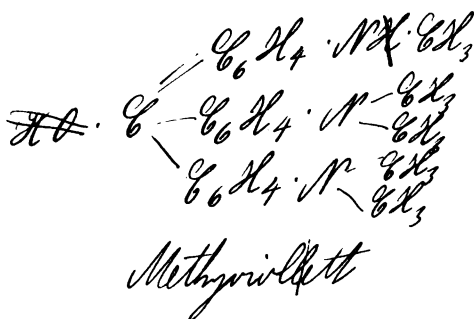 C₆H₄·NH·CH₃
HO·C–C₆H₄·N–CH₃
CH₃
C₆H₄·N CH₃
CH₃
Methylviolett